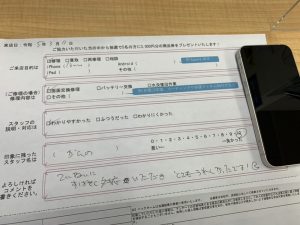 来店日:令和 5年3月 日
ご協力いただいた方の中から抽選で5名の方に3,000円分の商品券をプレゼントいたします!
ご来店目的は
□修理 □買取 □再修理 □相談
iPhone Android
iPad その他( )
(ご修理の場合)
修理内容は
画面交換修理 □バッテリー交換 □水没復旧作業
□その他(
スタッフの
説明・対応は
わかりやすかった □ふつうだった □わかりにくかった
0・1・2・3・4・5・6・7・8・9・10
悪い 良かった
印象に残った
スタッフ名は
( がんの )
よろしければ
コメントを
お書きください。
ていねいに
すばやく 対応 いただき とてもうれしかったです!